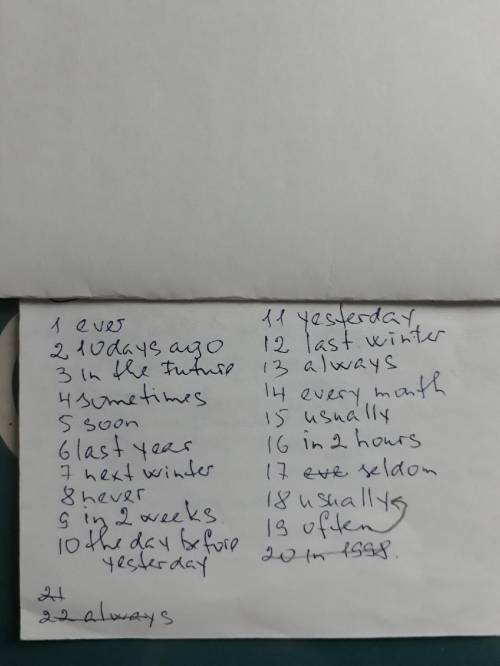 1 ever
2 10 days ago
3 in the future
4 sometimes
5 soon
6 last year
7 next winter
8 never
9 in 2 weeks
10 the day before
yesterday
21
22 always
11 yesterday
12 last winter
13 always
14 every month
15 usually
16 in 2 hours
17 eve seldom
18 usually
19 often
20 in 1998.